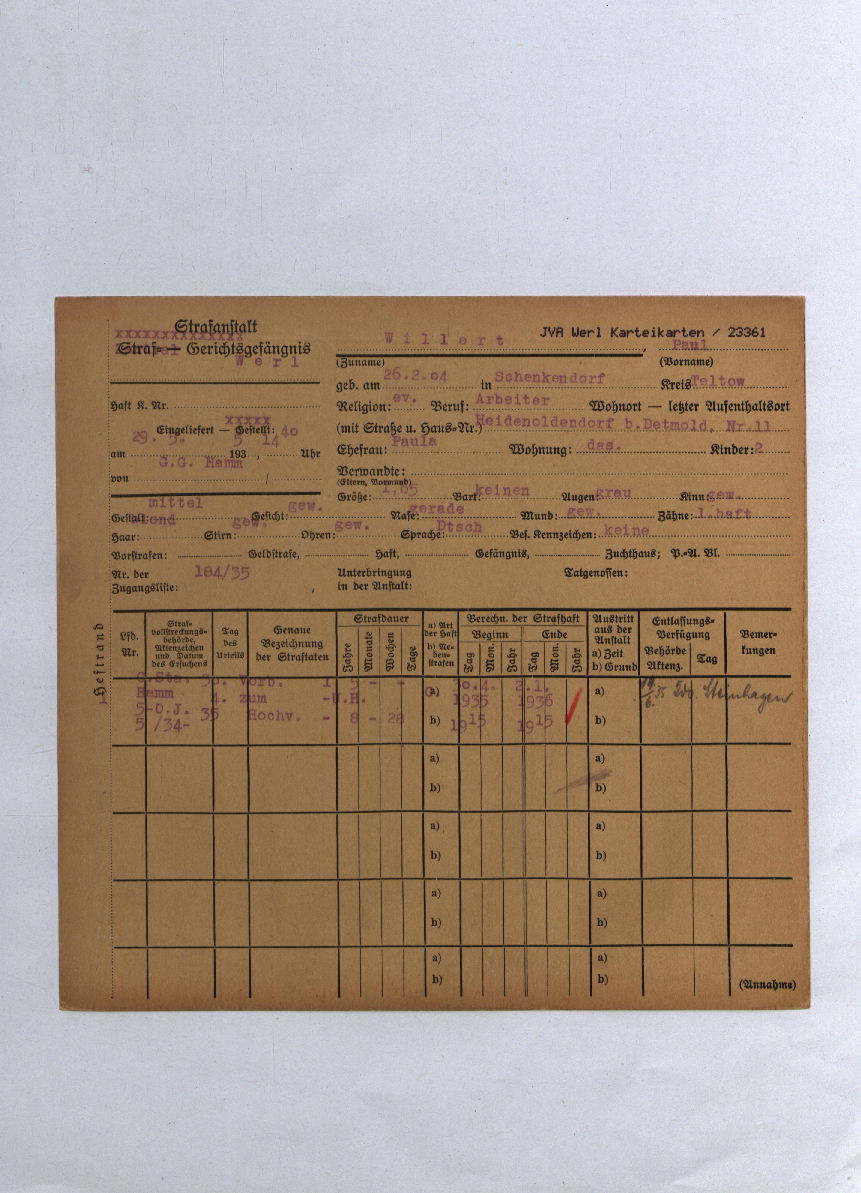 Strafanstalt
xxxxxxxxxxxxxx
Straf- — Gerichtsgefängnis
Werl
JVA Werl Karteikarten / 23361
Willert
Paul
(Zuname)
(Vorname)
geb. am 26.2.04 in Schenkendorf Kreis Teltow
Haft K. Nr.
Religion: ev. Beruf: Arbeiter Wohnort — letzter Aufenthaltsort
xxxxx
Eingeliefert — Gestellt:
(mit Straße u. Haus-Nr.) Heidenoldendorf b.Detmold, Nr.11
am 29. 5. 193 5, 14 40 Uhr
Ehefrau: Paula Wohnung: das. Kinder: 2
von G.G. Hamm
Verwandte:
(Eltern, Vormund)
Größe: 1,65 Bart: keinen Augen grau Kinn: gew.
Gestalt: mittel Gesicht: gew. Nase: gerade Mund: gew. Zähne: l.haft
Haar: blond Stirn: gew. Ohren: gew. Sprache: Dtsch Bes. Kennzeichen: keine
Vorstrafen: Geldstrafe, Haft, Gefängnis, Zuchthaus; P.-A. Bl.
Nr. der Zugangsliste: 184/35
Unterbringung in der Anstalt:
Tatgenossen:
Heftrand
Lfd. Nr.
Straf-vollstreckungs-behörde, Aktenzeichen und Datum des Ersuchens
Tag des Urteils
Genaue Bezeichnung der Straftaten
Strafdauer
Jahre Monate Wochen Tage
a) Art der Haft
b) Ne-ben-strafen
Berechn. der Strafhaft
Beginn Ende
Tag Mon. Jahr Tag Mon. Jahr
Austritt aus der Anstalt
a) Zeit
b) Grund
Entlassungs-Verfügung
Behörde Aktenz. Tag
Bemer-kungen
G.Sta. 30. Vorb. 1 a) 30.4. 2.1. a)
Hamm 4. zum -U.H. 1935 1936
5-O.J. 35 Hochv. - 8 - 28 b) 1915 1915 b)
5 /34-
Steinhagen
a) a)
b) b)
a) a)
b) b)
a) a)
b) b)
a) a)
b) b)
(Annahme)